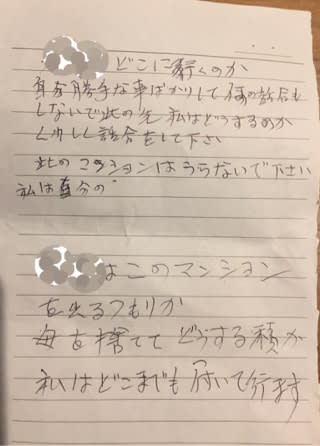 どこに行くのか
自分勝手な事ばかりして何の話合も
しないで此の先私はどうするのか
くわしく話合をして下さい
此のマンションはうらないで下さい
私は自分の
はこのマンション
を出るつもりか
母を捨ててどうする積か
私はどこまでも付いて行ます